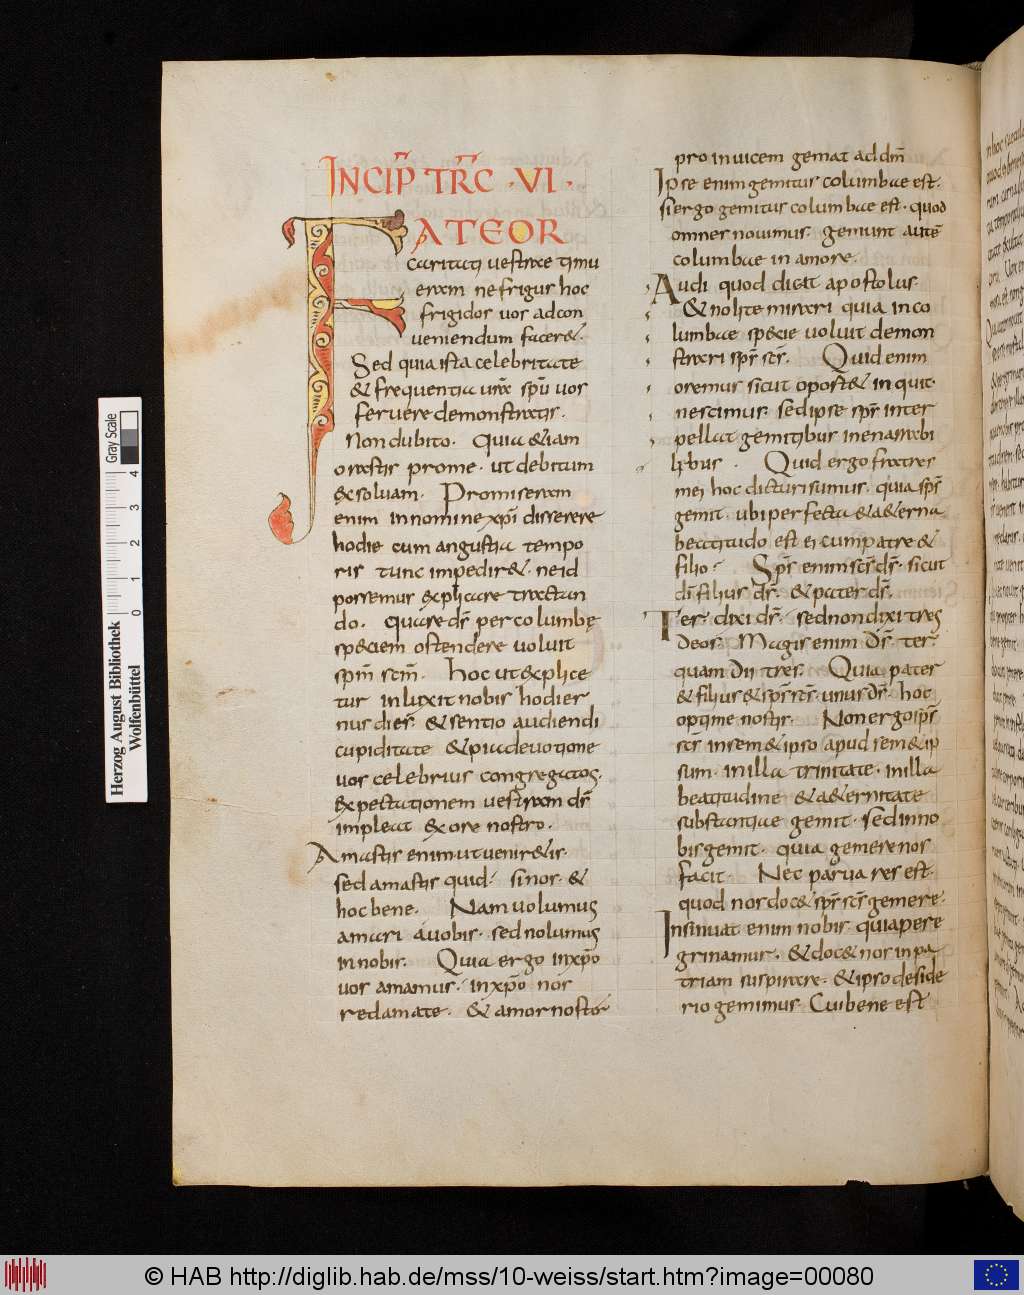 INCIP̅ TR̅C · VI ·
FATEOR
caritati vestrae timu
eram ne frigus hoc
frigidos uos ad con
ueniendum faceret.
Sed quia ista celebritate
& frequentia ur̅a sp̅u uos
feruere demonstratis.
Non dubito. Quia etiam
orastis pro me. ut debitum
exsoluam. Promiseram
enim in nomine xp̅i disserere
hodie cum angustia tempo
ris tunc impediret. ne id
possemus explicare tractan
do. quare d̅s per columbę
speciem ostendere uoluit
sp̅m sc̅m. Hoc ut explice
tur inluxit nobis hodier
nus dies. & sentio audiendi
cupiditate & pia deuotione
uos celebrius congregatos.
Expectationem uestram d̅s
impleat ex ore nostro.
Amastis enim ut uenir&is.
sed amastis quid? si nos. &
hoc bene. Nam uolumus
amari a uobis. sed nolumus
in nobis. Quia ergo in xp̅o
uos amamus. in xp̅o nos
redamate. & amor noster
pro inuicem gemat ad dm̅
Ipse enim gemitus columbae est.
si ergo gemitus columbae est. quod
omnes nouimus. gemunt aute̅
columbae in amore.
Audi quod dicit apostolus.
& nolite mirari quia in co
lumbae specie uoluit demon
strari sp̅s sc̅s. Quid enim
oremus sicut oport& inquit.
nescimus. sed ipse sp̅s inter
pellat gemitibus inenarrabi
libus. Quid ergo fratres
mei hoc dicturi sumus. quia sp̅s
gemit. ubi perfecta & aeterna
beatitudo est ei cum patre &
filio? Sp̅s enim sc̅s d̅s. sicut
di̅ filius d̅s. & pater d̅s.
Ter dixi d̅s. sed non dixi tres
Deos. Magis enim d̅s ter.
quam dii tres. Quia pater
& filius & sp̅s sc̅s. unus d̅s. hoc
optime nostis. Non ergo sp̅s
sc̅s in semetipso apud semetip
sum. in illa trinitate. in illa
beatitudine & aeternitate
substantiae gemit. sed in no
bis gemit. quia gemere nos
facit. Nec parua res est.
quod nos docet sp̅s sc̅s gemere.
Insinuat enim nobis. quia pere
grinamur. & docet nos in pa
triam suspirare. & ipso deside
rio gemimus. Cui bene est
Herzog August Bibliothek
Wolfenbüttel
Gray Scale
0 1 2 3 4
© HAB http://diglib.hab.de/mss/10-weiss/start.htm?image=00080